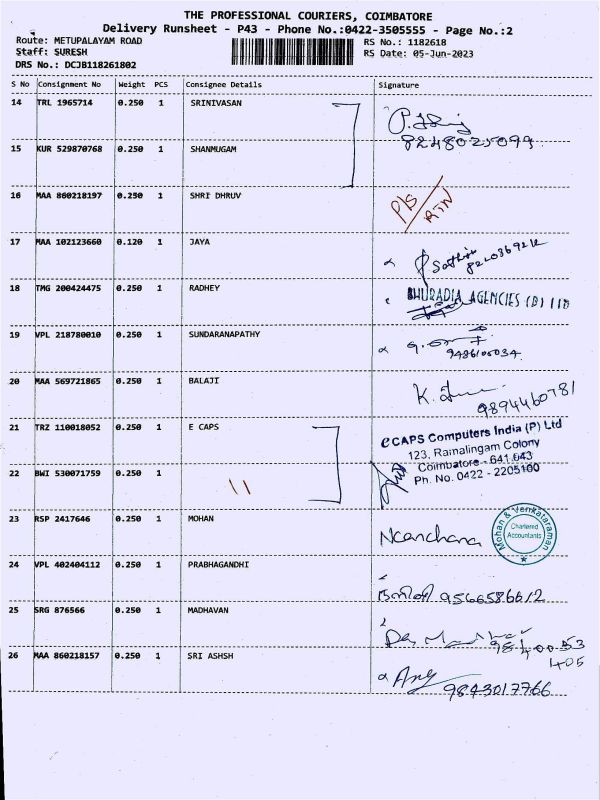 THE PROFESSIONAL COURIERS, COIMBATORE
Delivery Runsheet - P43 - Phone No.:0422-3505555 - Page No.:2
Route: METUPALAYAM ROAD RS No.: 1182618
Staff: SURESH RS Date: 05-Jun-2023
DRS No.: DCJB118261802
S No Consignment No Weight PCS Consignee Details Signature
14 TRL 1965714 0.250 1 SRINIVASAN
8248025099
15 KUR 529870768 0.250 1 SHANMUGAM
16 MAA 860218197 0.250 1 SHRI DHRUV P/S RTN
17 MAA 102123660 0.120 1 JAYA
18 TMG 200424475 0.250 1 RADHEY BHURADIA AGENCIES (P) LTD
19 VPL 218780010 0.250 1 SUNDARANAPATHY
9486106034
20 MAA 569721865 0.250 1 BALAJI
9894460781
21 TRZ 110018052 0.250 1 E CAPS eCAPS Computers India (P) Ltd
123, Ramalingam Colony
Coimbatore - 641 043
Ph. No. 0422 - 2205100
22 BWI 530071759 0.250 1 11
23 RSP 2417646 0.250 1 MOHAN Ncanchana Mohan & Venkataraman
Chartered
Accountants
24 VPL 402404112 0.250 1 PRABHAGANDHI
9566586612
25 SRG 876566 0.250 1 MADHAVAN
98400 53
405
26 MAA 860218157 0.250 1 SRI ASHSH
9843017766